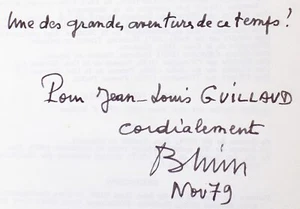 Une des grandes aventures de ce temps !
Pour Jean-Louis GUILLAUD
cordialement
Nov 79